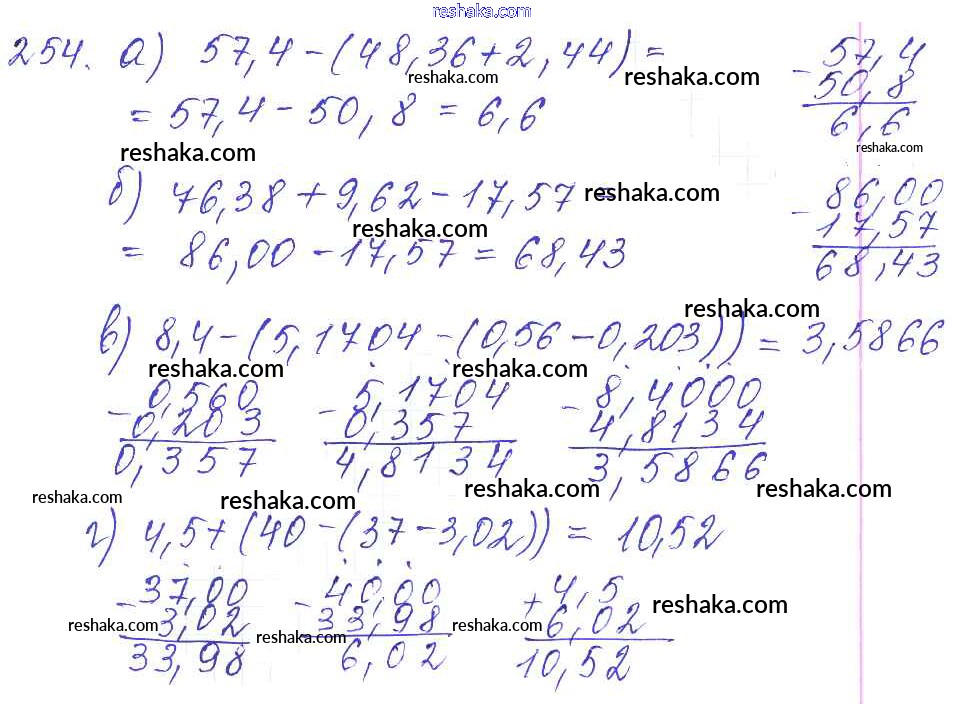 reshaka.com
254. а) 57,4 - (48,36 + 2,44) =
reshaka.com reshaka.com
= 57,4 - 50,8 = 6,6
- 57,4
50,8
6,6
reshaka.com reshaka.com
б) 76,38 + 9,62 - 17,57 =
reshaka.com reshaka.com
= 86,00 - 17,57 = 68,43
- 86,00
17,57
68,43
reshaka.com
в) 8,4 - (5,1704 - (0,56 - 0,203)) = 3,5866
reshaka.com reshaka.com
- 0,560
0,203
0,357
- 5,1704
0,357
4,8134
- 8,4000
4,8134
3,5866
reshaka.com reshaka.com reshaka.com reshaka.com
г) 4,5 + (40 - (37 - 3,02)) = 10,52
- 37,00
3,02
33,98
- 40,00
33,98
6,02
+ 4,5
6,02
10,52
reshaka.com reshaka.com reshaka.com reshaka.com